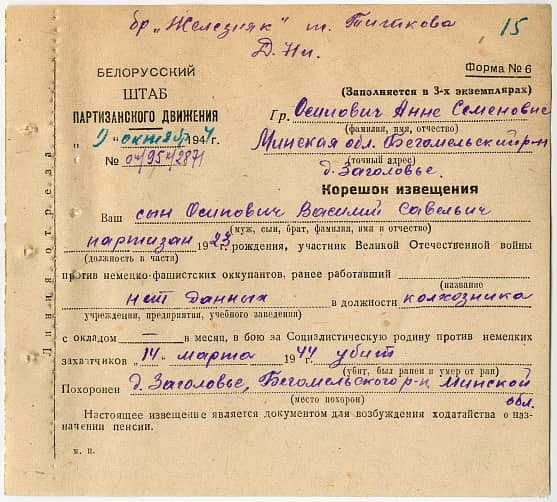 бр „Железняк“ т. Титкова
15
Д. Нл.
БЕЛОРУССКИЙ
ШТАБ
ПАРТИЗАНСКОГО ДВИЖЕНИЯ
„ 9 “ октября 1944 г.
№
Форма № 6
(Заполняется в 3-х экземплярах)
Гр. Осипович Анне Семеновне
(фамилия, имя, отчество)
Минская обл. Бегомельский р-н
(точный адрес)
д. Заголовье.
Корешок извещения
Ваш сын Осипович Василий Савельич
(муж, сын, брат, фамилия, имя и отчество)
партизан 1923 г. рождения, участник Великой Отечественной войны
(должность в части)
против немецко-фашистских оккупантов, ранее работавший
(название
нет данных в должности колхозника
учреждения, предприятия, учебного заведения)
с окладом — в месяц, в бою за Социалистическую родину против немецких
захватчиков „14“ марта 1944 убит
(убит, был ранен и умер от ран)
Похоронен д. Заголовье, Бегомельского р-н, Минской
(место похорон) обл.
Настоящее извещение является документом для возбуждения ходатайства о наз-
начении пенсии.
м. п.
Линия отреза